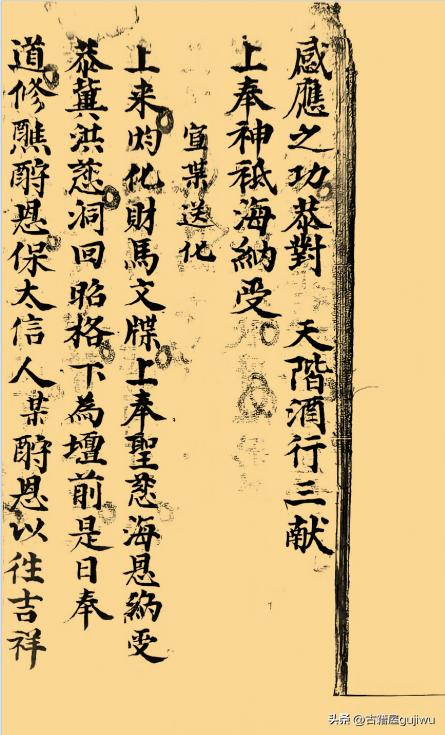 感應之功恭對　天階酒行三献
上奉神祇海納受
宣菓送化
上来灼化財馬文牒上奉聖慈海恩納受
恭冀洪慈洞回昭格下為壇前是日奉
道修醮酧恩保太信人某酧恩以往吉祥
头条 @古籍屋gujiwu